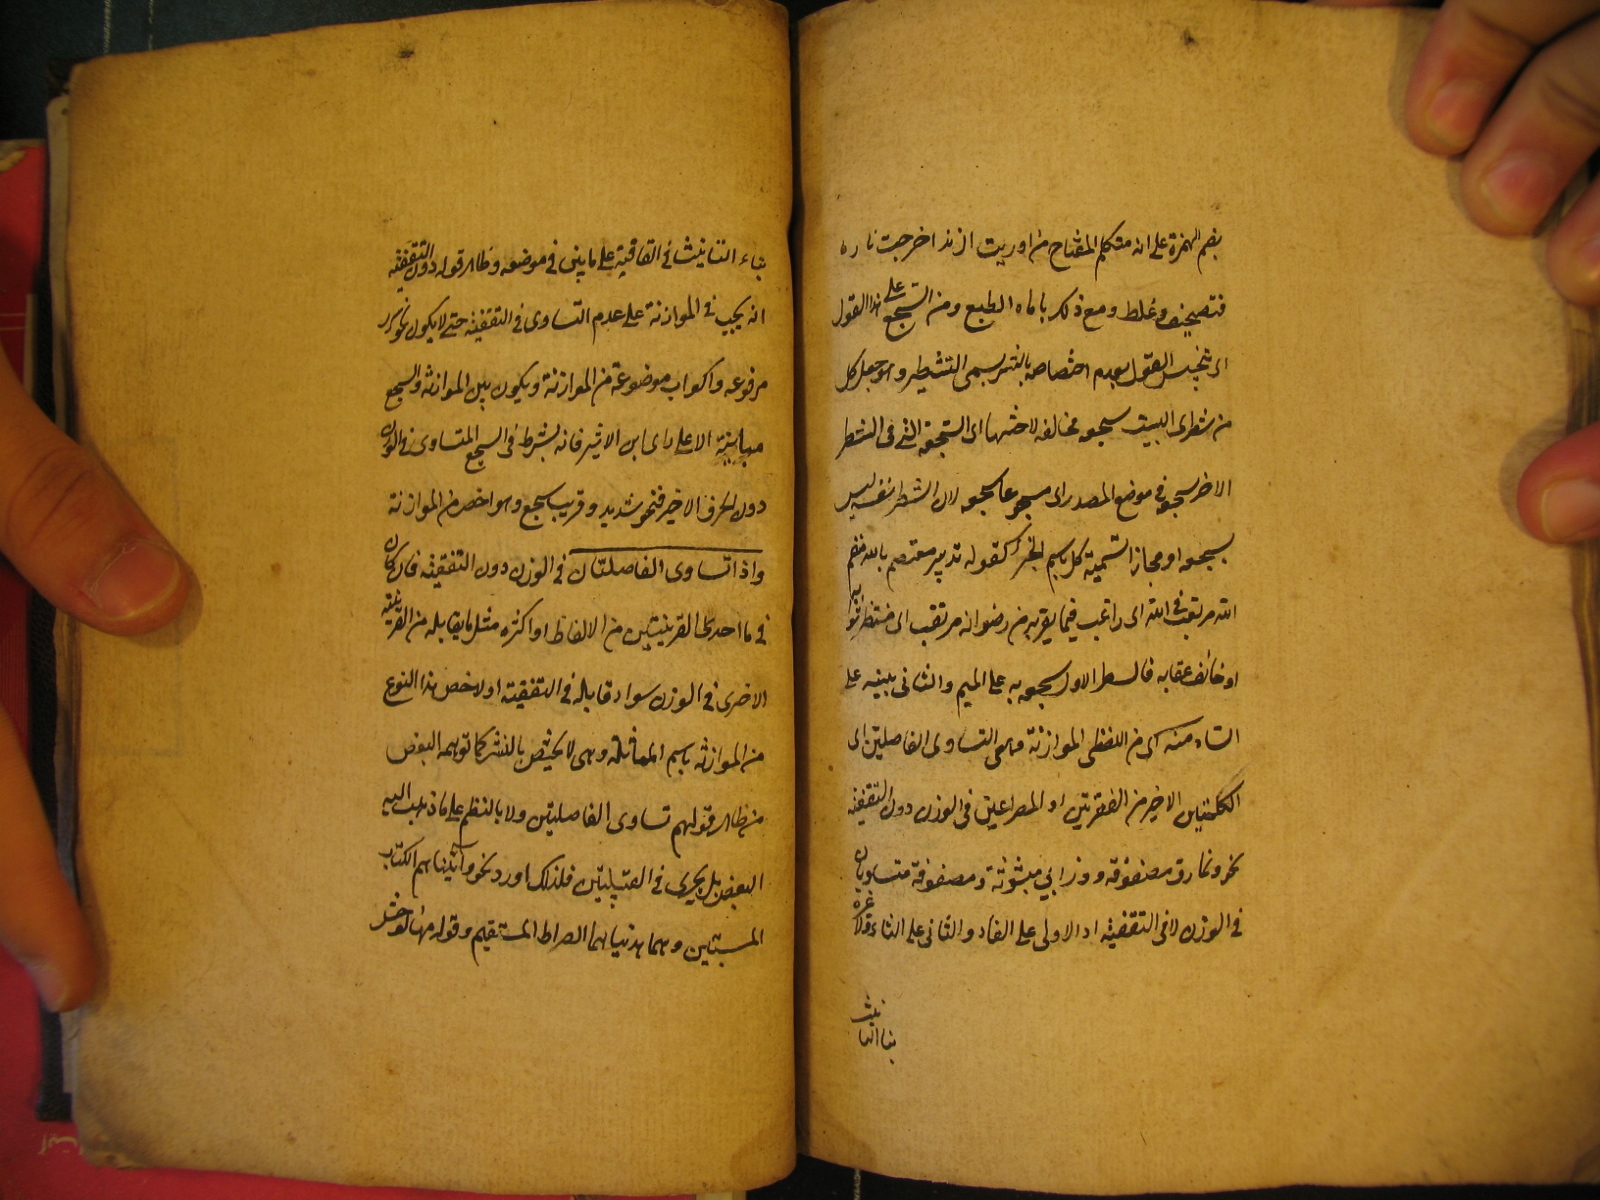 بضم الهمزة على انه متكلم المضارع من اوريت الزند اخرجت ناره
فتصحيف وغلط ومع ذلك ياباه الطبع ومن السجع على هذا القول
اى القول بعدم اختصاصه بالنثر يسمى التشطير وهو جعل كل
من شطرى البيت سجعه مخالفه لاختها اى السجعة التى فى الشطر
الاخر سجعه فى موضع المصدر اى مسجوعا سجعه لان الشطر نفسه ليس
بسجعه او مجاز تسمية كل باسم الجزء كقوله تدبير معتصم بالله منتقم
لله مرتغب فى الله اى راغب فيما يقربه من رضوانه مرتقب اى منتظر ثوابه
او خائف عقابه فالشطر الاول سجعه على الميم والثانى مبنيه على
الباء ومنه اى من اللفظى الموازنة وهى التساوى الفاصلتين اى
الكلمتين الاخير من الفقرتين او المصراعين فى الوزن دون التقفية
نحو ونمارق مصفوفة وزرابي مبثوثة ومصفوفة متساويان
فى الوزن لا فى التقفية اذ الاولى على الفاء والثانى على الثاء ولا عبرة
بتاء التانيث
بتاء التانيث فى القافية على ما بين فى موضعه وظاهر قوله دون التقفية
انه يجب فى الموازنة على عدم التساوى فى التقفية حتى لا يكون نحو سرر
مرفوعه واكواب موضوعة من الموازنة ويكون بين الموازنة والسجع
مباينة الا على راى ابن الاثير فانه يشترط فى السجع المتساوى فى الوزن
دون الحرف الاخير فنحو شديد وقريب سجع وهو اخص من الموازنة
واذا تساوى الفاصلتان فى الوزن دون التقفية فان كان
فى ما احدى القرينتين من الالفاظ او اكثره مثل ما يقابله من القرينة
الاخرى فى الوزن سواء قابله فى التقفية او لا خص هذا النوع
من الموازنة باسم المماثلة وهى لا يختص بالنثر كما توهمه البعض
من ظاهر قولهم تساوى الفاصلتين ولا بالنظم على ما ذهب اليه
البعض بل يجرى فى القبيلتين فلذلك اورد نحو واتيناهما الكتاب
المستبين وهما هديناهما الصراط المستقيم وقوله مها الوحش